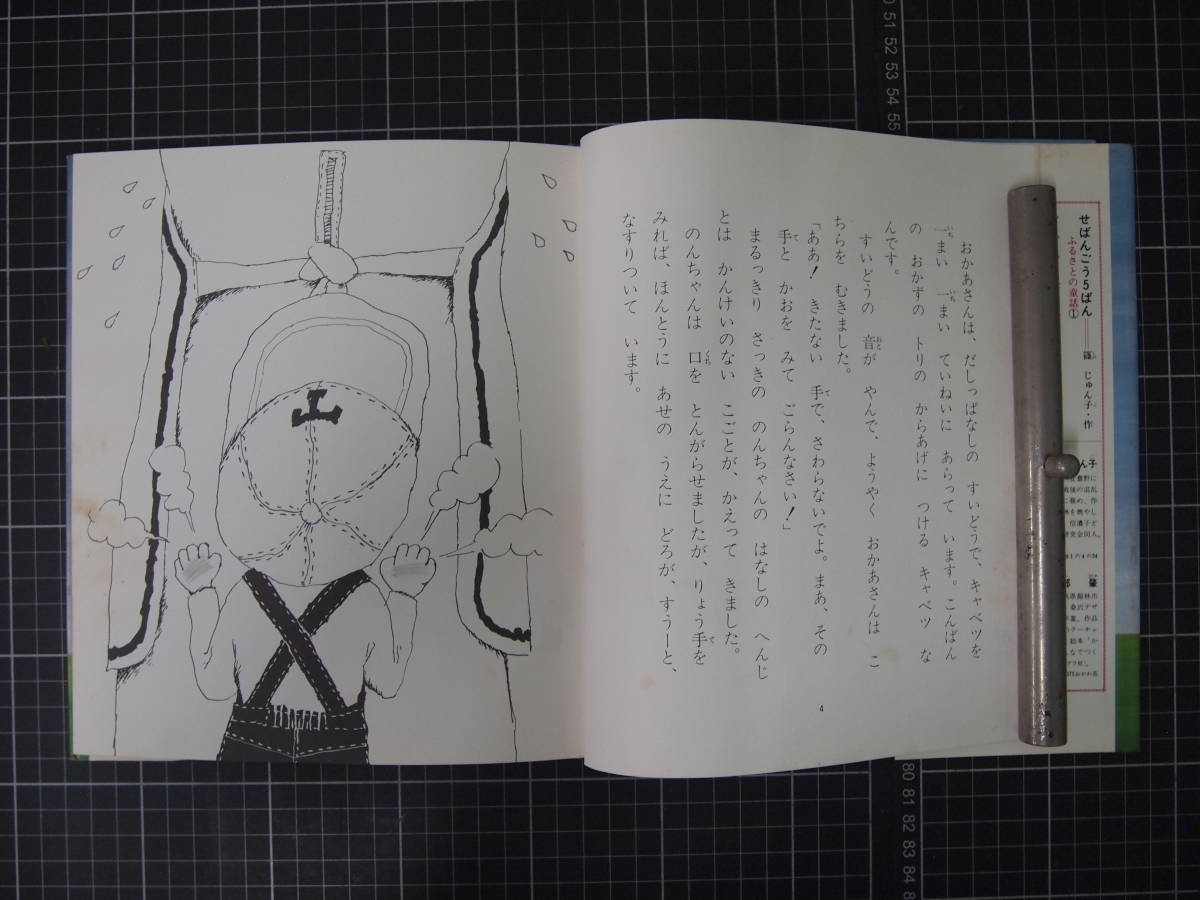 おかあさんは、だしっぱなしの すいどうで、キャベツを
一まい 一まい ていねいに あらって います。こんばん
の おかずの トリの からあげに つける キャベツ な
んです。
すいどうの 音が やんで、ようやく おかあさんは こ
ちらを むきました。
「ああ! きたない 手で、さわらないでよ。まあ、その
手と かおを みて ごらんなさい!」
まるっきり さっきの のんちゃんの はなしの へんじ
とは かんけいのない こごとが、かえって きました。
のんちゃんは 口を とんがらせましたが、りょう手を
みれば、ほんとうに あせの うえに どろが、すうーと、
なすりついて います。
4
せばんごう5ばん
ふるさとの童話①
じゅん子・作
ん子
戦後の混乱
に務め、作
熱を燃やし
信濃子ど
研究会同人。
肇
県館林市
桑沢デザ
卒業。作品
絵本「か
んなでつく
50
51
52
53
54
55
80
81
82
83
84